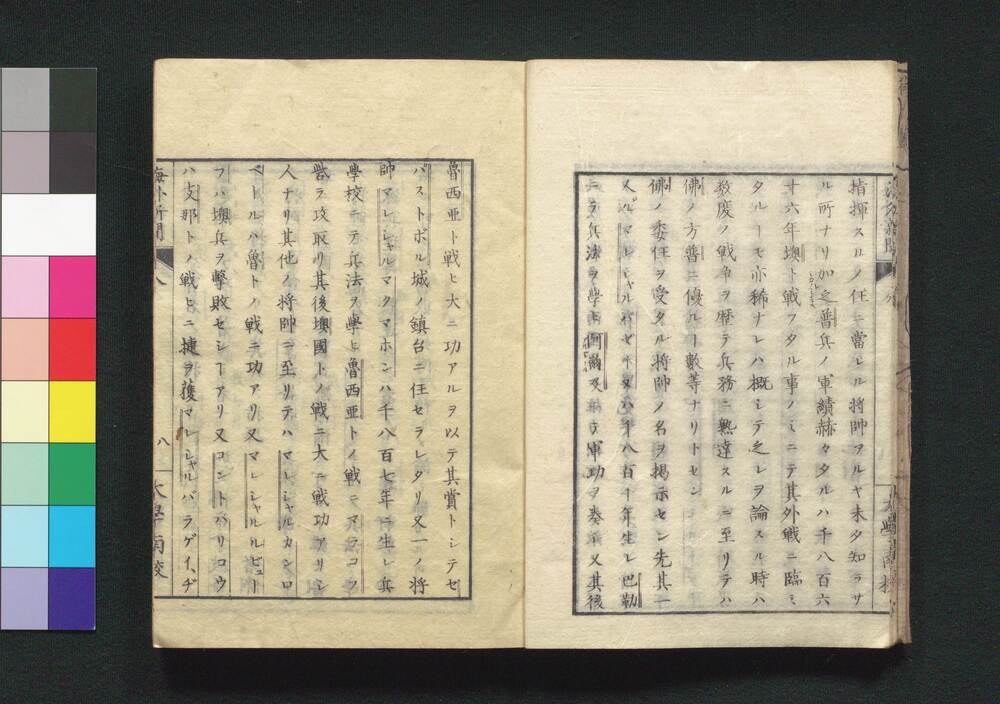 指揮スルノ任ニ當レル將帥アルヤ未タ知ラサ
ル所ナリ加之普兵ノ軍績赫々タルハ千八百六
十六年墺ト戦フタル事ノミニテ其外戦ニ臨ミ
タルヿモ亦稀ナレハ概シテ之レヲ論スル時ハ
数度ノ戦争ヲ歴テ兵務ニ熟達スルニ至リテハ
佛ノ方普ニ優ルヿ數等ナリトセン
佛ノ委任ヲ受タル將帥ノ名ヲ掲示セン先其一
人ハマレシャルバゼーヌハ千八百十年生レ巴勒
ニテ兵法ヲ學ヒ テ軍功ヲ奏シ又其後
魯西亜ト戦ヒ大ニ功アルヲ以テ其賞トシテセ
バストポル城ノ鎮台ニ任セラレタリ又一ノ将
帥マレシャルマクマホンハ千八百七年ニ生レ兵
學校ニテ兵法ヲ學ヒ魯西亜トノ戦ニマラコフ
砦ヲ攻取リ其後墺國トノ戦ニ大ニ戦功アリシ
人ナリ其他ノ将帥ニ至リテハマレシャルカンロ
ベトルハ魯トノ戦ニ功アリ又マレシャルルビュー
フハ墺兵ヲ擊敗セシヿアリ又コントパリコウ
ハ支那トノ戦ヒニ捷ヲ獲マレシャルバラゲイ、ヂ
海外新聞
八
大學南校